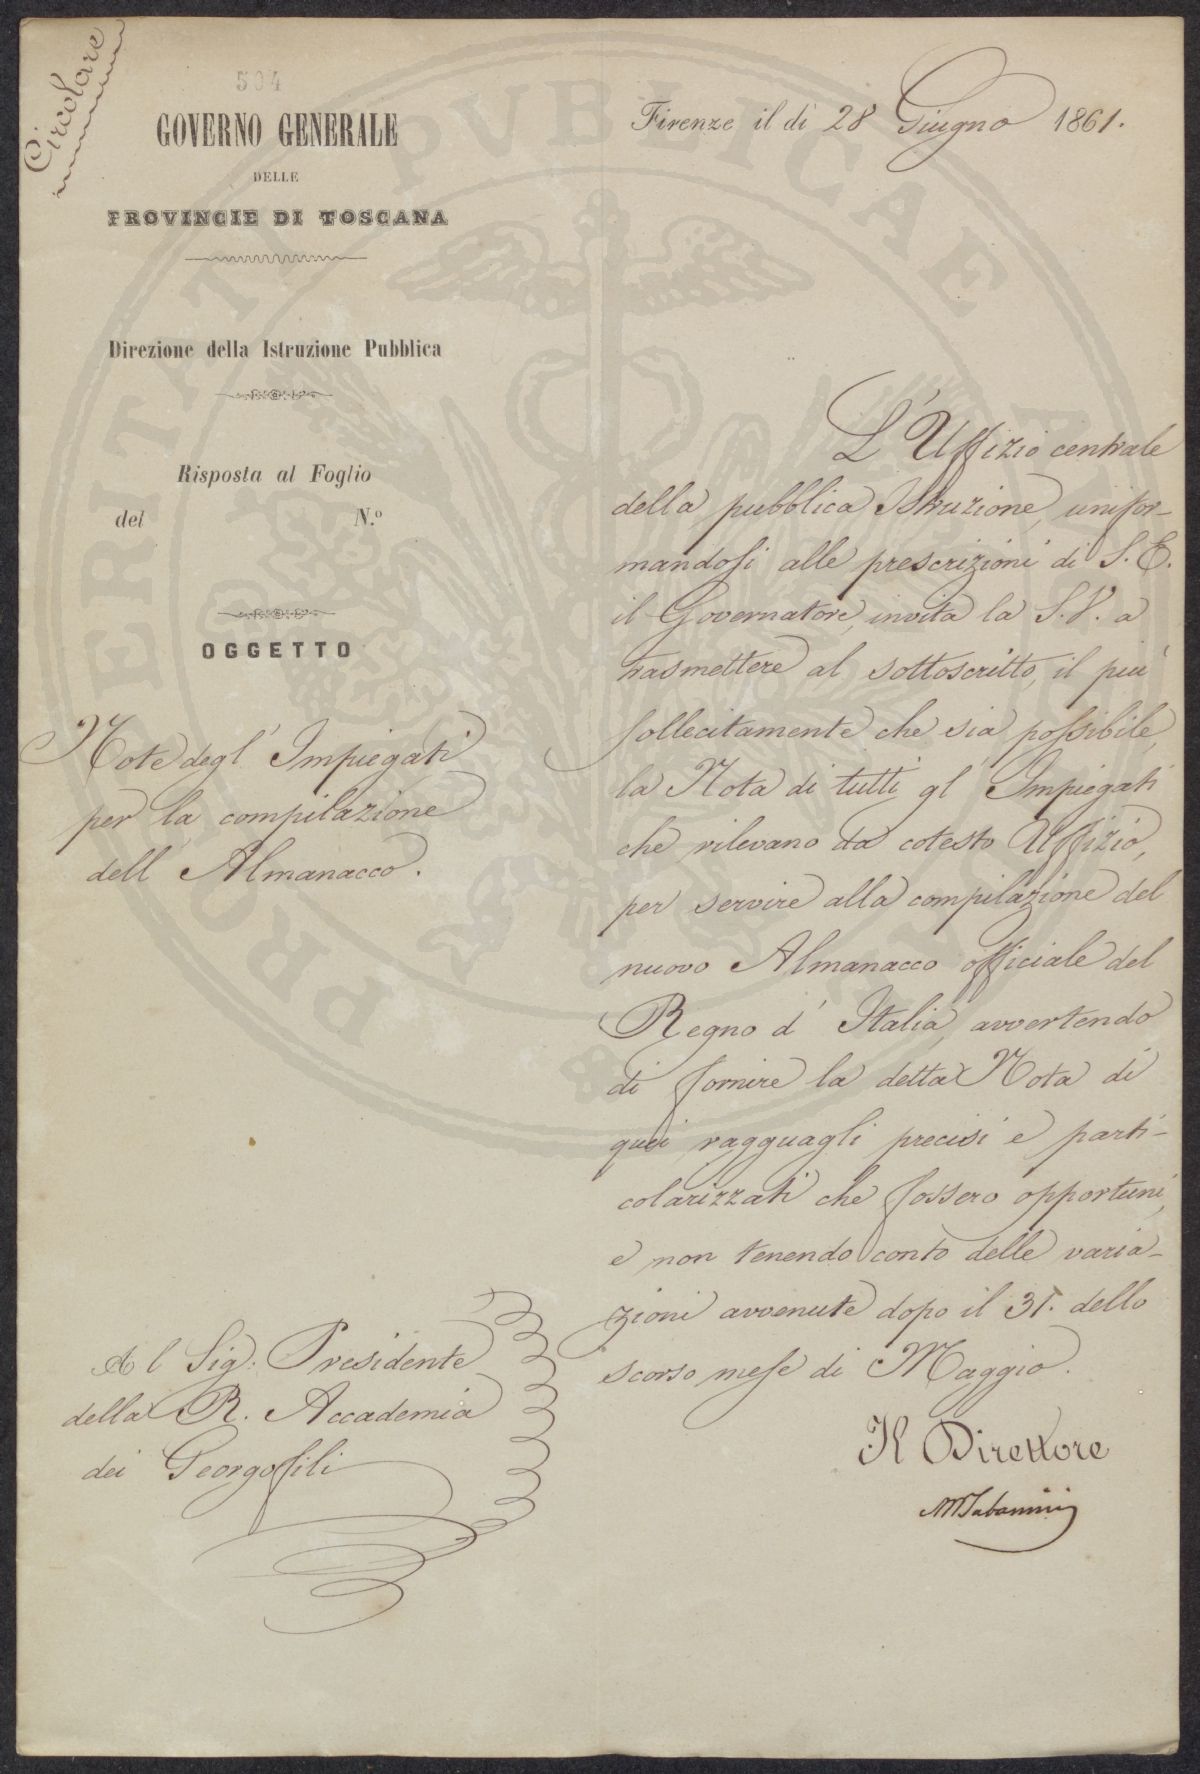 Circolare
504
GOVERNO GENERALE
DELLE
PROVINCIE DI TOSCANA
Direzione della Istruzione Pubblica
Risposta al Foglio
del N.º
OGGETTO
Note degl' Impiegati
per la compilazione
dell Almanacco.
Al Sig: Presidente
della R. Accademia
dei Georgofili
Firenze il dì 28 Giugno 1861.
L'Uffizio centrale
della pubblica Istruzione, unifor-
mandosi alle prescrizioni di S. E.
il Governatore, invita la S. V. a
trasmettere al sottoscritto, il più
sollecitamente che sia possibile,
la Nota di tutti gl' Impiegati
che rilevano da cotesto Uffizio,
per servire alla compilazione del
nuovo Almanacco officiale del
Regno d' Italia, avvertendo
di fornire la detta Nota di
quei ragguagli precisi e parti-
colarizzati che fossero opportuni,
e non tenendo conto delle varia-
zioni avvenute dopo il 31. dello
scorso mese di Maggio.
Il Direttore
PROSPERITATI PVBLICAE